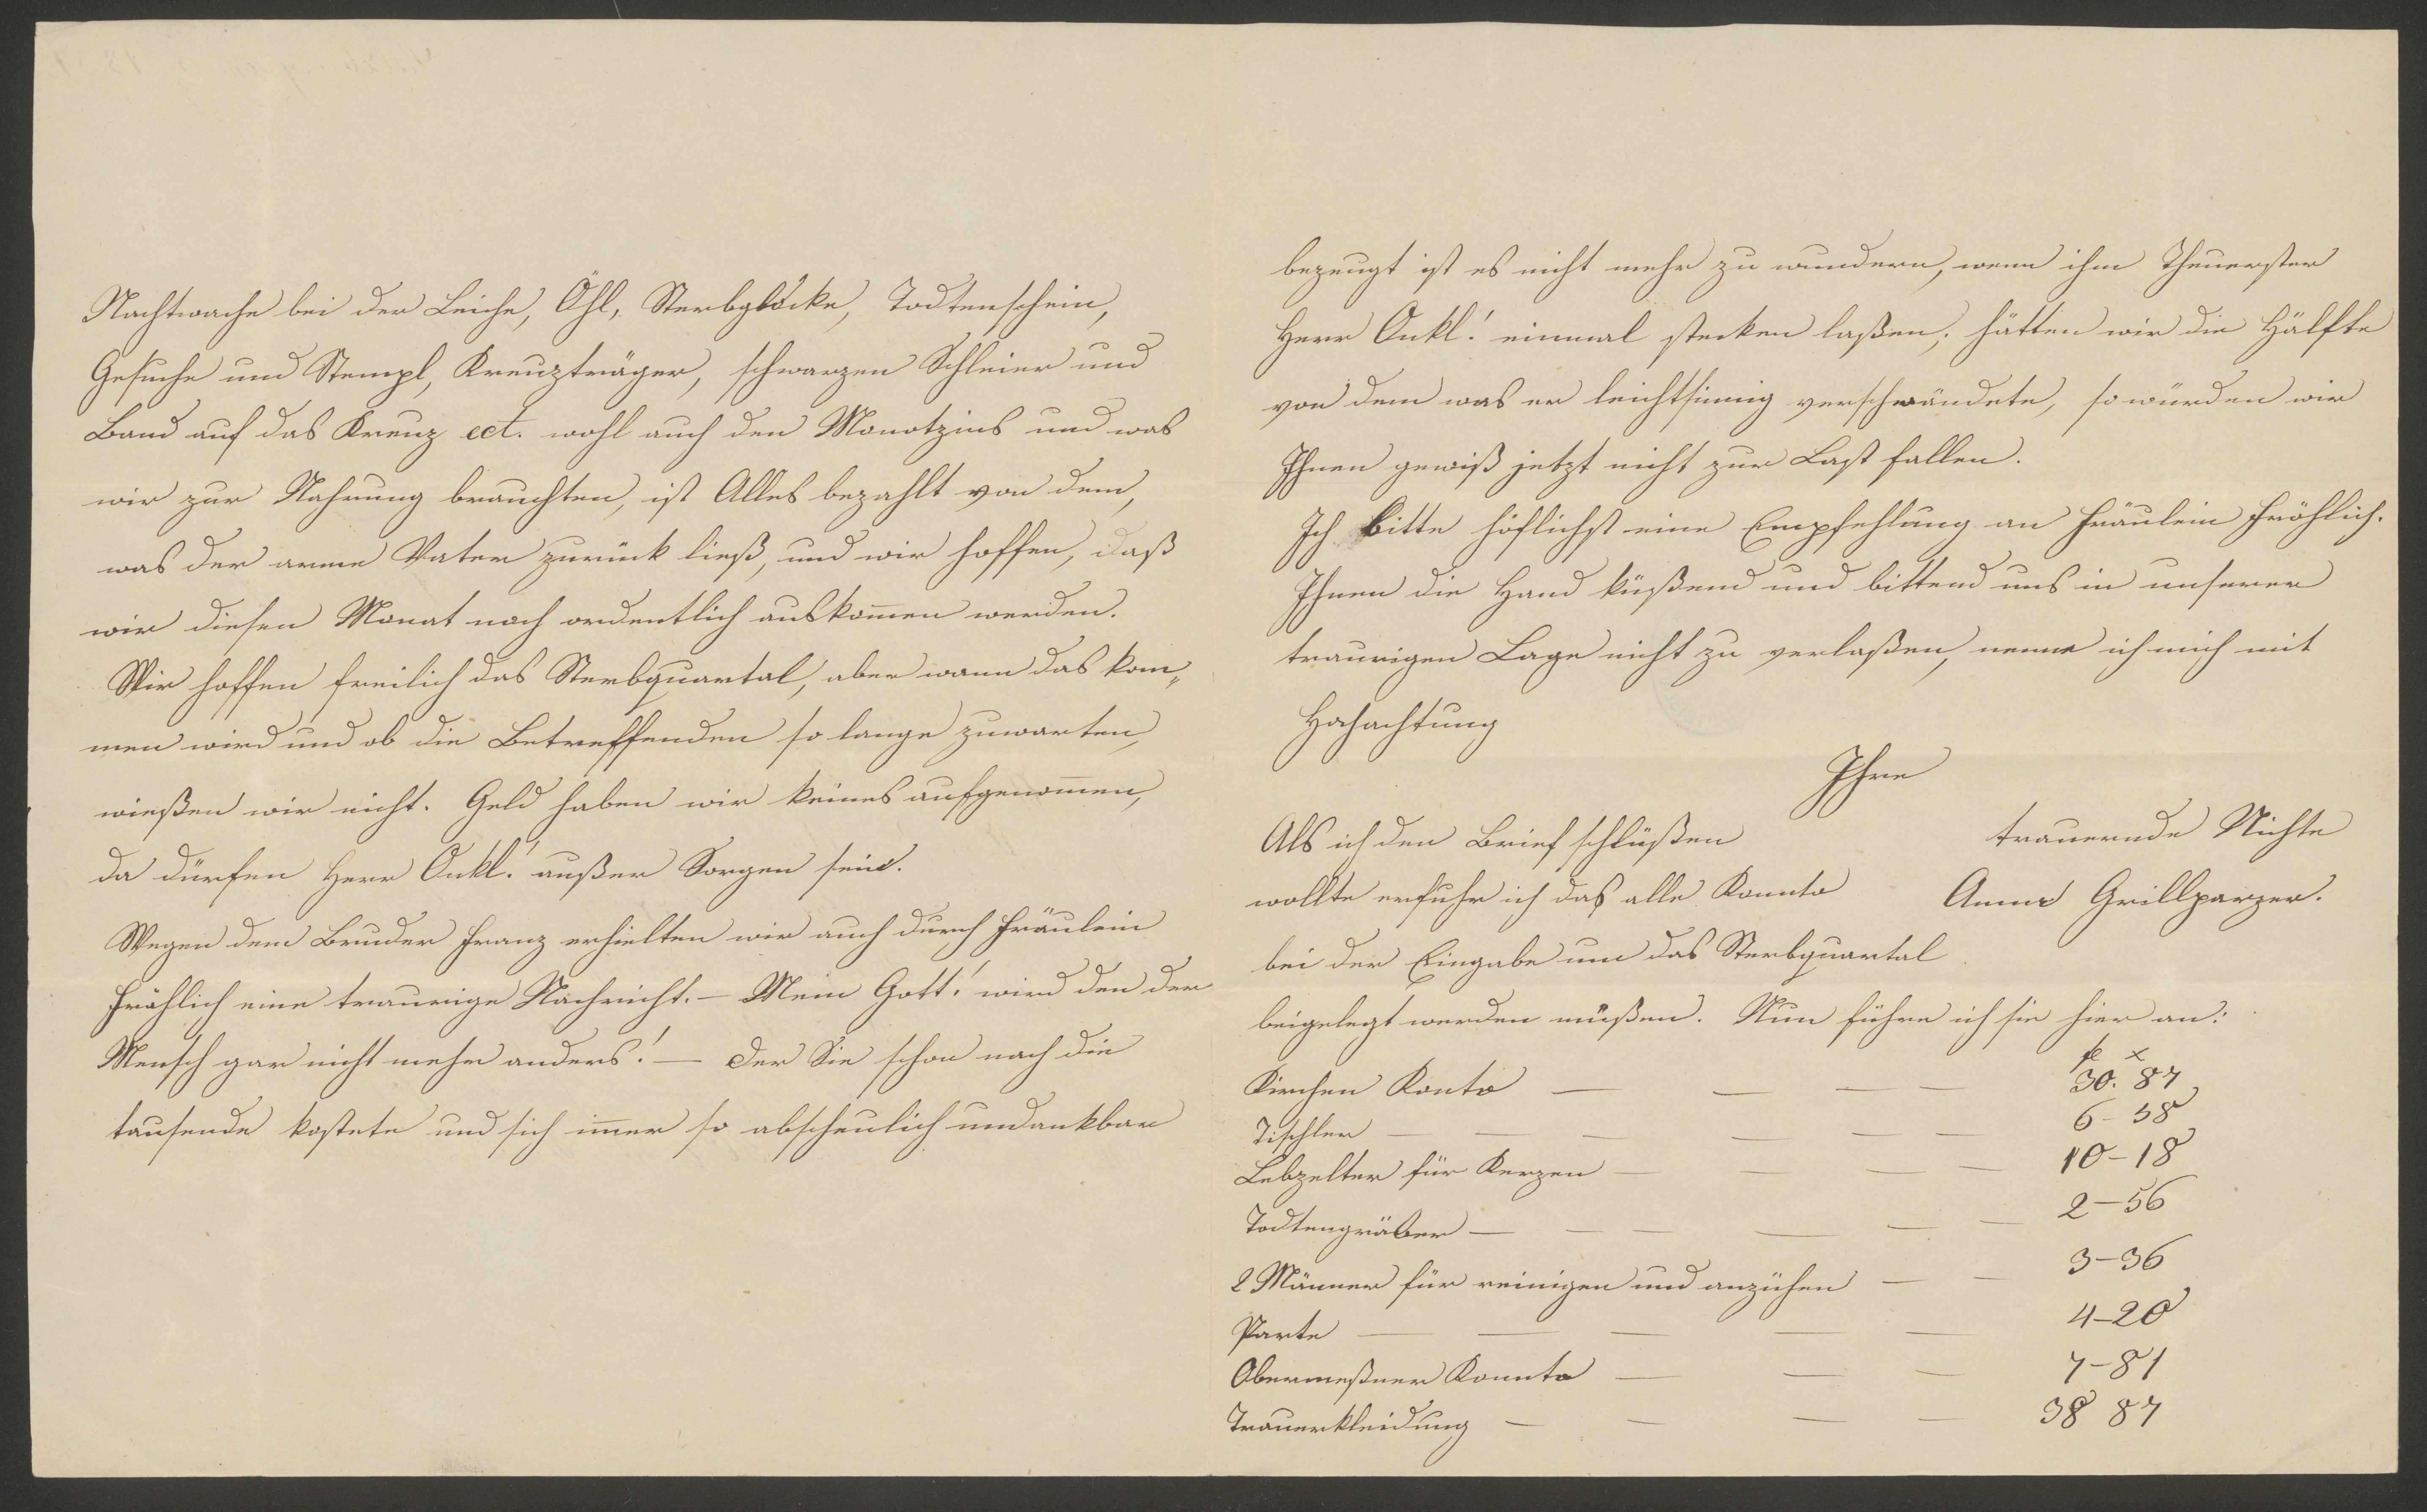 Nachtwache bei der Leiche, Öhl, Sterbglocke, Todtenschein,
Gesuche und Stempl, Kreuzträger, schwarzen Schleier und
Band auf das Kreuz ect. wohl auch den Monatzins und was
wir zur Nahrung brauchten, ist Alles bezahlt von dem,
was der arme Vater zurück ließ, und wir hoffen, daß
wir diesen Monat noch ordentlich auskom̅en werden.
Wir hoffen freilich das Sterbquartal, aber wann das kom„
men wird und ob die Betreffenden so lange zuwarten,
wießen wir nicht. Geld haben wir keines aufgenom̅en,
da dürfen Herr Onkl! außer Sorgen sein.
Wegen dem Bruder Franz erhielten wir auch durch Fräulein
Fröhlich eine traurige Nachricht. – Mein Gott! wird den der
Mensch gar nicht mehr anders! – Der Sie schon nach die
tausende kostete und sich im̅er so abscheulich undankbar
bezeugt ist es nicht mehr zu wundern, wenn ihm Theuerster
Herr Onkl! einmal stecken laßen; hätten wir die Hälfte
von dem was er leichtsinnig verschwändete, so würden wir
Ihnen gewiß jetzt nicht zur Last fallen.
Ich bitte höflichst eine Empfehlung an Fräulein Fröhlich.
Ihnen die Hand küßend und bittend uns in unserer
traurigen Lage nicht zu verlaßen, nenne ich mich mit
Hochachtung
Ihre
trauernde Nichte
Anna Grillparzer.
Als ich den Brief schlüßen
wollte erfuhr ich das alle Konnto
bei der Eingabe um das Sterbquartal
beigelegt werden müßen. Nun führe ich sie hier an:
fl x
Kirchen Konto — — — — 30. 87
Tischler — — — — — — 6 - 58
Lebzelter für Kerzen — — — — 10 - 18
Todtengräber — — — — — — 2 - 56
2 Männer für reinigen und anzühen — — 3 - 36
Parte — — — — — 4 - 20
Obermeßner Konnto — — — 7 - 81
Trauerkleidung — — — — 38 87